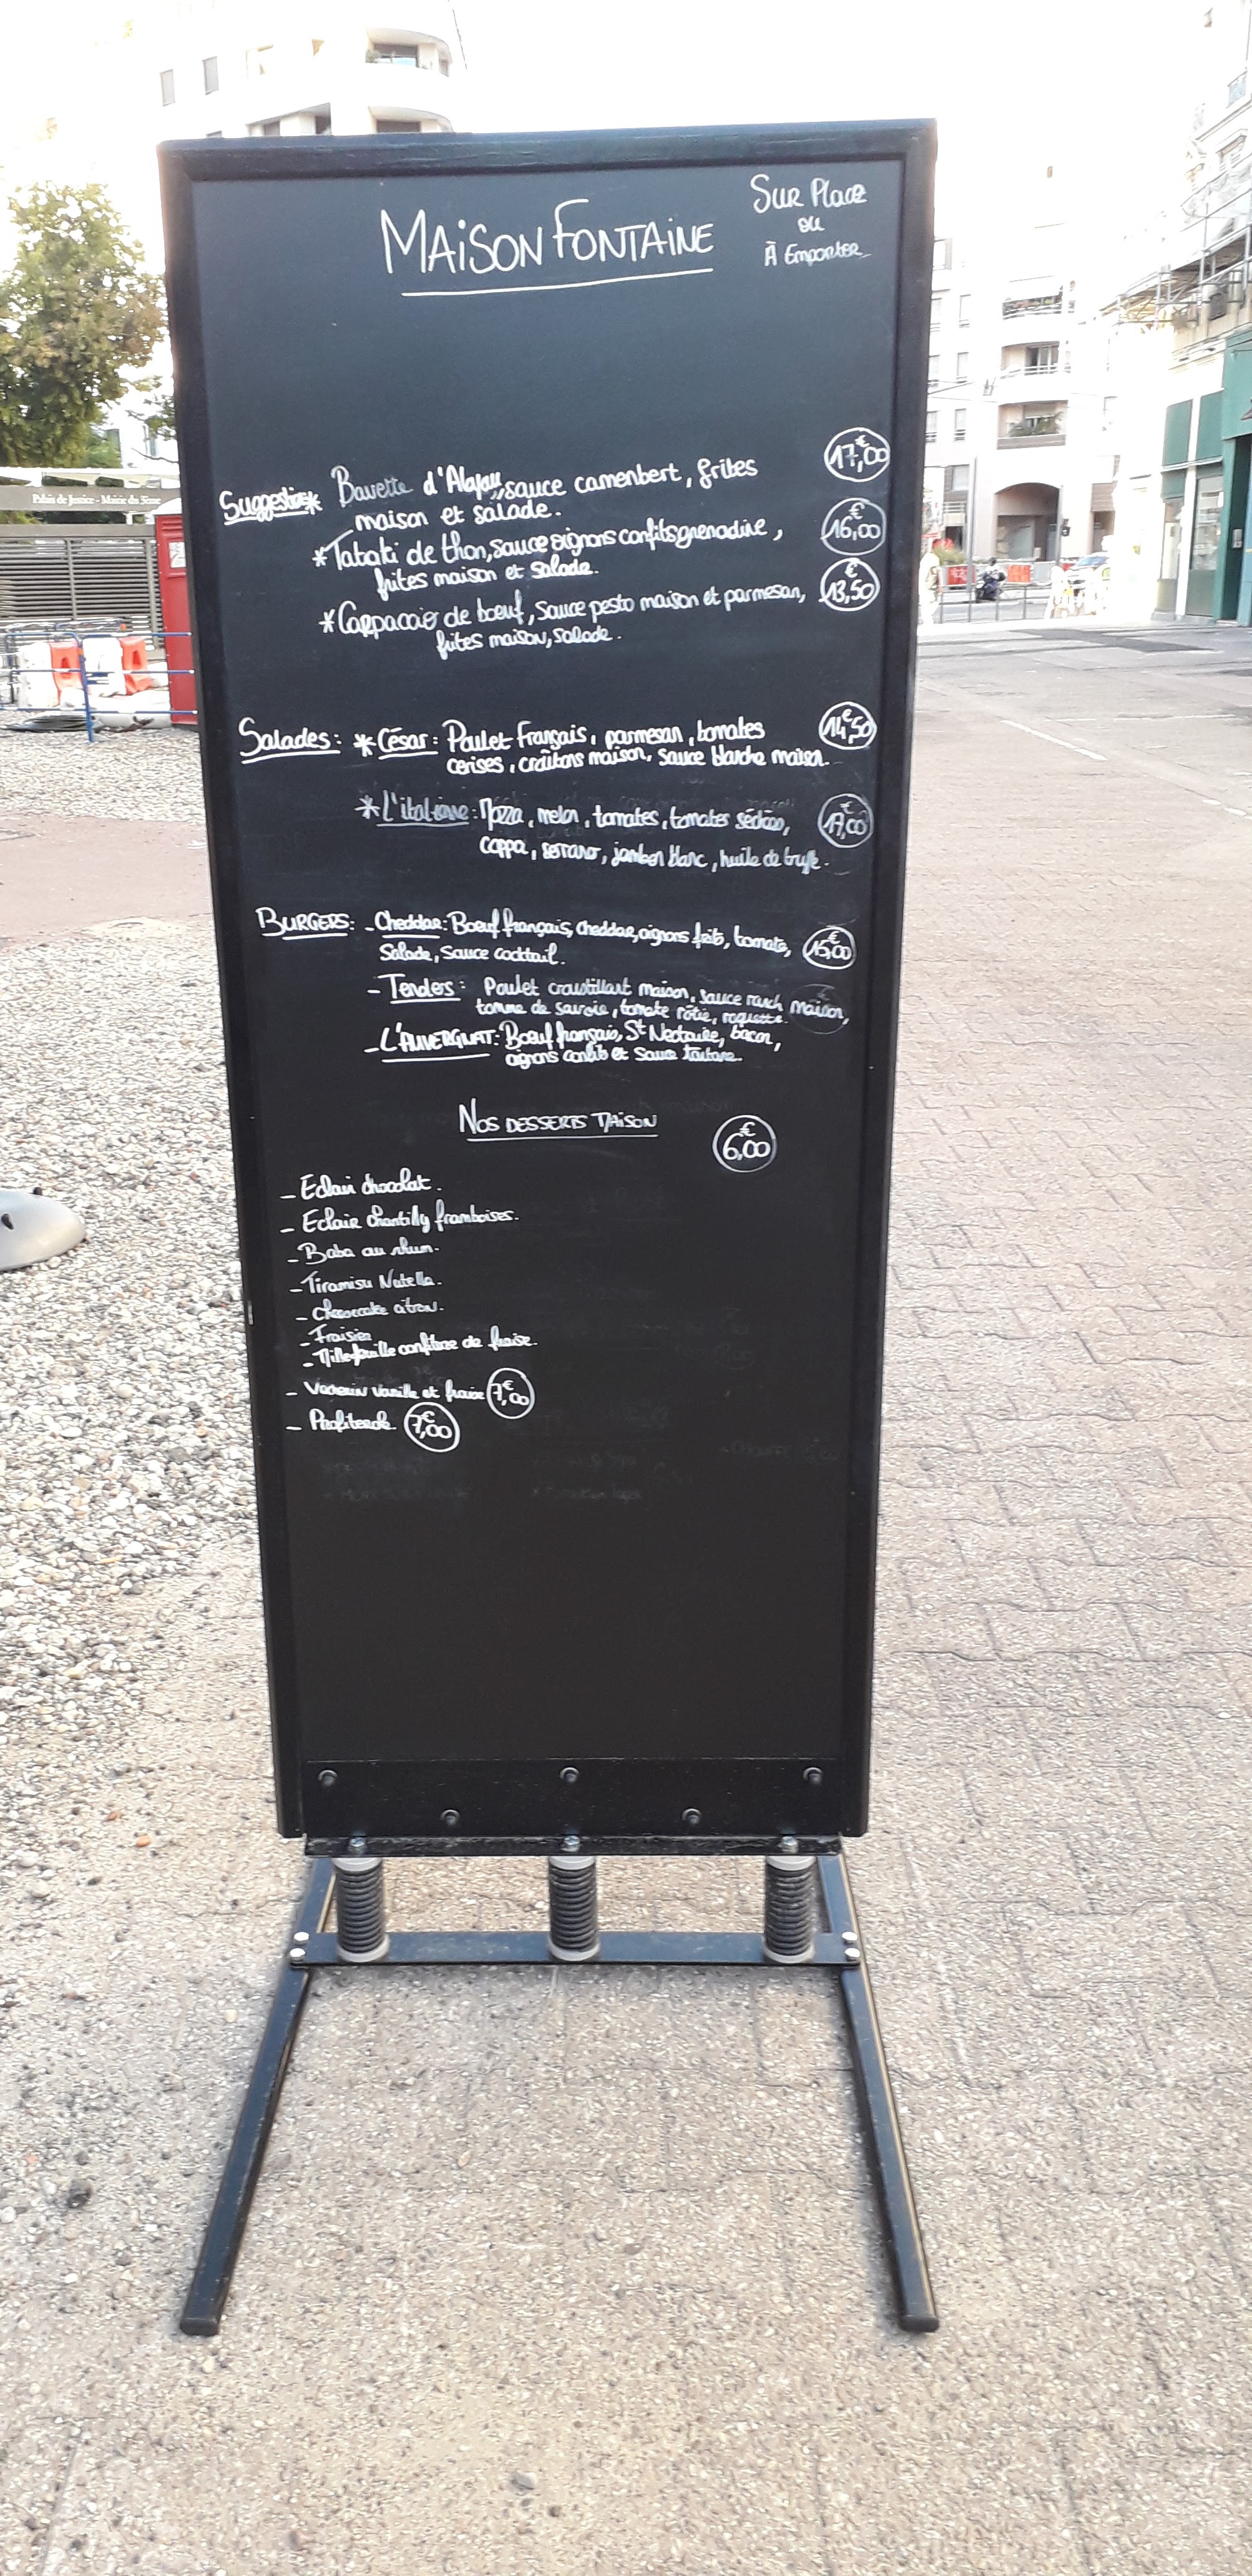 MAISON FONTAINE
SUR PLACE
ou
À Emporter
Palais de Justice - Mairie du 3ème
Suggestions * Bavette d'Aloyau, sauce camenbert, frites
maison et salade.
17,00 €
* Tataki de thon, sauce oignons confits grenadine,
frites maison et salade.
16,00 €
* Carpaccio de bœuf, sauce pesto maison et parmesan,
frites maison, salade.
13,50 €
Salades : * César : Poulet Français, parmesan, tomates
cerises, croûtons maison, sauce blanche maison.
14,50 €
* L'italienne : Mozza, melon, tomates, tomates séchées,
coppa, serrano, jambon blanc, huile de truffe.
17,00 €
BURGERS : - Cheddar : Bœuf français, cheddar, oignons frits, tomate,
Salade, Sauce cocktail.
15,00 €
- Tenders : Poulet croustillant maison, sauce ranch maison,
tomme de savoie, tomate rôtie, roquette.
- L'AUVERGNAT : Bœuf français, St Nectaire, bacon,
oignons confits et Sauce tartare.
NOS DESSERTS MAISON
6,00 €
- Eclair chocolat.
- Eclair chantilly framboises.
- Baba au rhum.
- Tiramisu Nutella.
- Cheesecake citron.
- Fraisier
- Millefeuille confiture de fraise.
- Vacherin vanille et fraise 7,00 €
- Profiterole 7,00 €